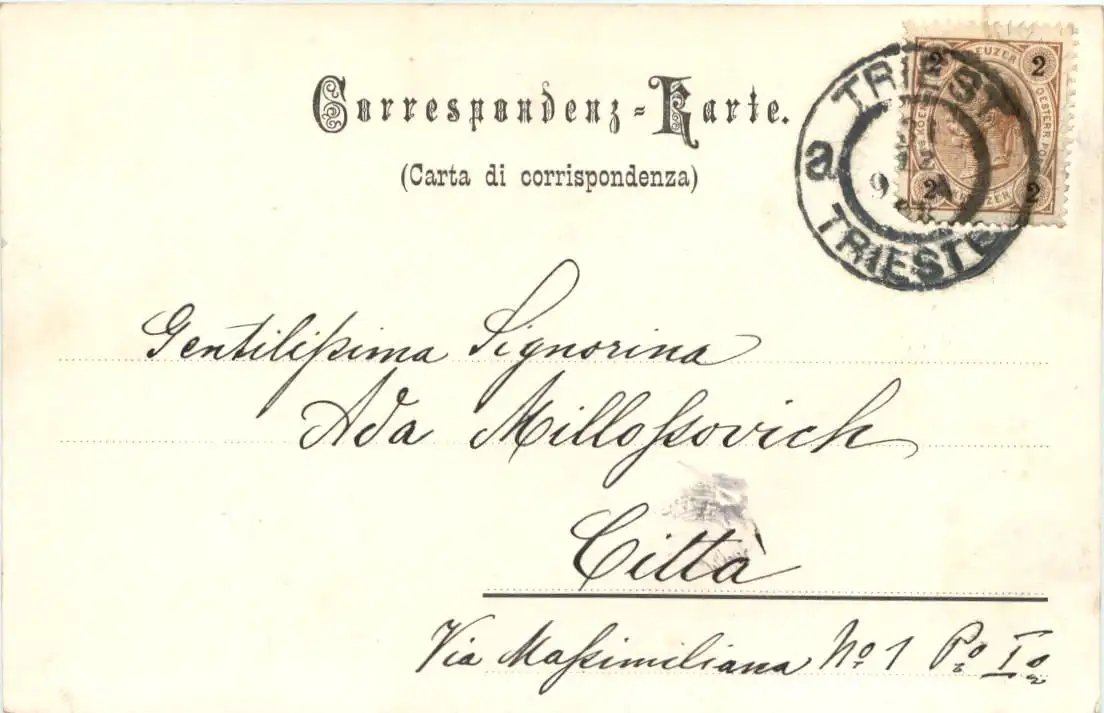 Correspondenz-Karte.
(Carta di corrispondenza)
TRIEST
a
TRIESTE
9
2 KREUZER 2
OESTERR
2 KREUZER 2
Gentilißima Signorina
Ada Milloßovich
Città
Via Maßimiliana No. 1 Po. Io.